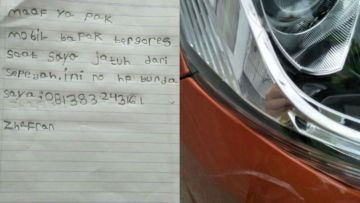 maaf ya pak
mobil bapak tergores
saat saya jatuh dari
sepedah.ini no hp bunda
saya:081383243161
Zhafran